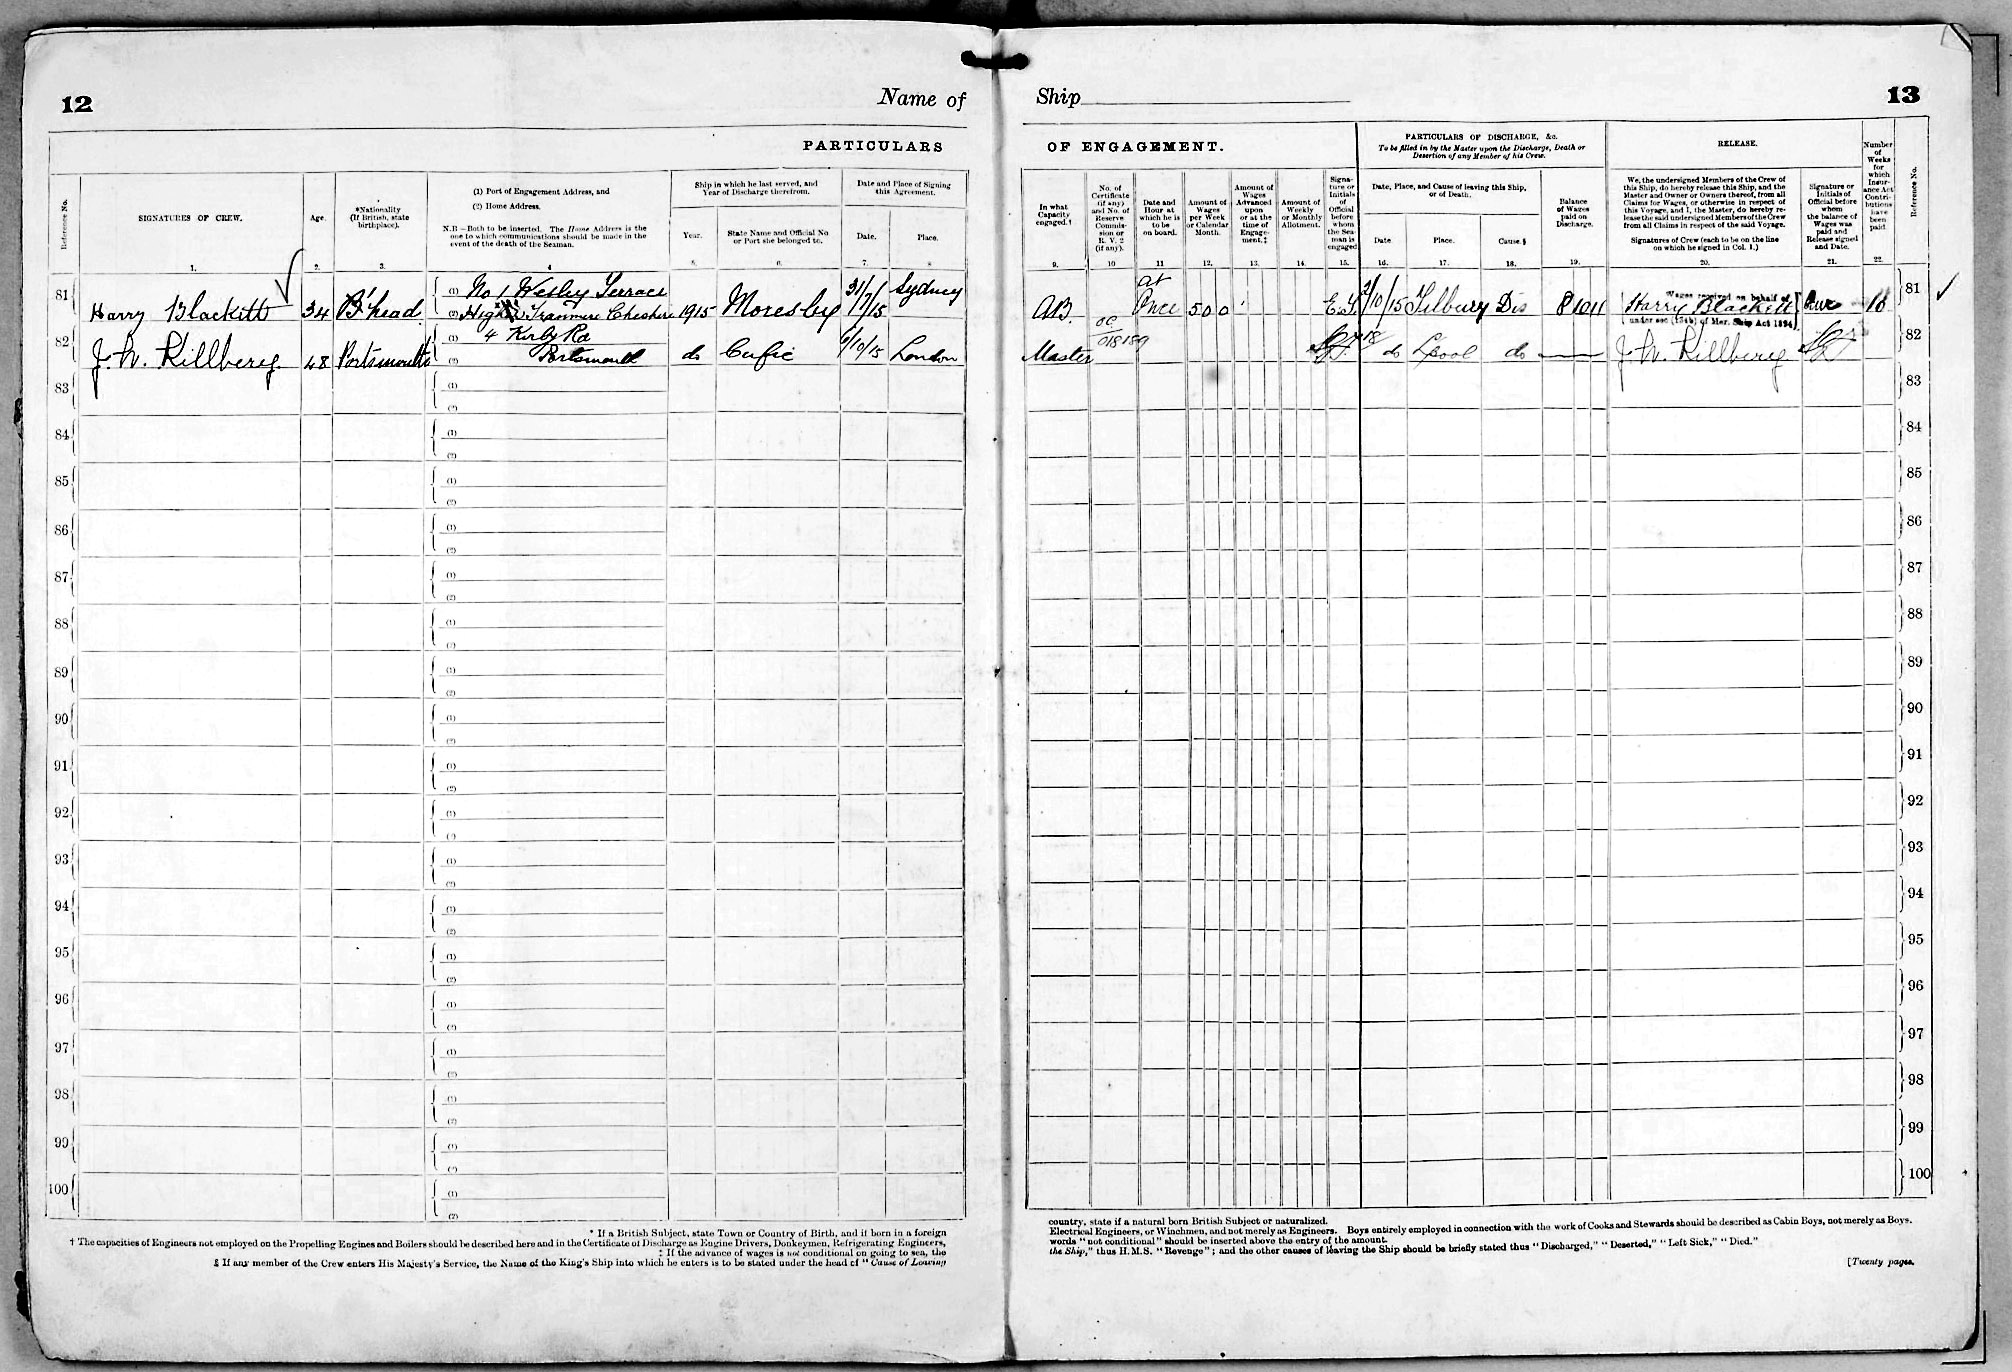 12
Name of
PARTICULARS
Reference No.
SIGNATURES OF CREW.
Age.
*Nationality
(If British, state
birthplace).
(1) Port of Engagement Address, and
(2) Home Address.
N.B —Both to be inserted. The Home Address is the
one to which communications should be made in the
event of the death of the Seaman.
Ship in which he last served, and
Year of Discharge therefrom.
Year.
State Name and Official No
or Port she belonged to.
Date and Place of Signing
this Agreement.
Date.
Place.
1. 2. 3. 4 5. 6. 7. 8
81 Harry Blackitt 34 B'head. (1) No 1 Wesley Terrace
(2) High Tranmere Cheshire 1915 Moresby 31/7/15 Sydney
82 J. W. Killberg. 48 Portsmouth (1) 4 Kirby Rd
(2) Portsmouth do Cufic 6/10/15 London
83 (1)
(2)
84 (1)
(2)
85 (1)
(2)
86 (1)
(2)
87 (1)
(2)
88 (1)
(2)
89 (1)
(2)
90 (1)
(2)
91 (1)
(2)
92 (1)
(2)
93 (1)
(2)
94 (1)
(2)
95 (1)
(2)
96 (1)
(2)
97 (1)
(2)
98 (1)
(2)
99 (1)
(2)
100 (1)
(2)
* If a British Subject, state Town or Country of Birth, and if born in a foreign
† The capacities of Engineers not employed on the Propelling Engines and Boilers should be described here and in the Certificate of Discharge as Engine Drivers, Donkeymen, Refrigerating Engineers,
‡ If the advance of wages is not conditional on going to sea, the
§ If any member of the Crew enters His Majesty's Service, the Name of the King's Ship into which he enters is to be stated under the head of "Cause of Leaving
Ship
13
OF ENGAGEMENT.
PARTICULARS OF DISCHARGE, &c.
To be filled in by the Master upon the Discharge, Death or
Desertion of any Member of his Crew.
RELEASE.
In what
Capacity
engaged.†
No. of
Certificate
(if any)
and No. of
Reserve
Commis-
sion or
R. V. 2
(if any).
Date and
Hour at
which he is
to be
on board.
Amount of
Wages
per Week
or Calendar
Month.
Amount of
Wages
Advanced
upon
or at the
time of
Engage-
ment.‡
Amount of
Weekly
or Monthly
Allotment.
Signa-
ture or
Initials
of
Official
before
whom
the Sea-
man is
engaged
Date, Place, and Cause of leaving this Ship,
or of Death.
Date
Place.
Cause.§
Balance
of Wages
paid on
Discharge.
We, the undersigned Members of the Crew of
this Ship, do hereby release this Ship, and the
Master and Owner or Owners thereof, from all
Claims for Wages, or otherwise in respect of
this Voyage, and I, the Master, do hereby re-
lease the said undersigned Members of the Crew
from all Claims in respect of the said Voyage.
Signatures of Crew (each to be on the line
on which he signed in Col. 1.)
Signature or
Initials of
Official before
whom
the balance of
Wages was
paid and
Release signed
and Date.
Number
of
Weeks
for
which
Insur-
ance Act
Contri-
butions
have
been
paid.
Reference No.
9. 10 11 12. 13. 14. 15. 16. 17. 18. 19. 20. 21. 22.
AB. at Once 5 0 0 2/10/15 Tilbury Dis 8 10 11 Harry Blackett 81
Wages received on behalf of
under sec (154b) of Mer. Ship Act 1894
Master 018159 do L'pool do J. W. Killberg 82
83
84
85
86
87
88
89
90
91
92
93
94
95
96
97
98
99
100
country, state if a natural born British Subject or naturalized.
Electrical Engineers, or Winchmen, and not merely as Engineers. Boys entirely employed in connection with the work of Cooks and Stewards should be described as Cabin Boys, not merely as Boys.
words "not conditional" should be inserted above the entry of the amount.
the Ship," thus H.M.S. "Revenge"; and the other causes of leaving the Ship should be briefly stated thus "Discharged," "Deserted," "Left Sick," "Died."
[Twenty pages.